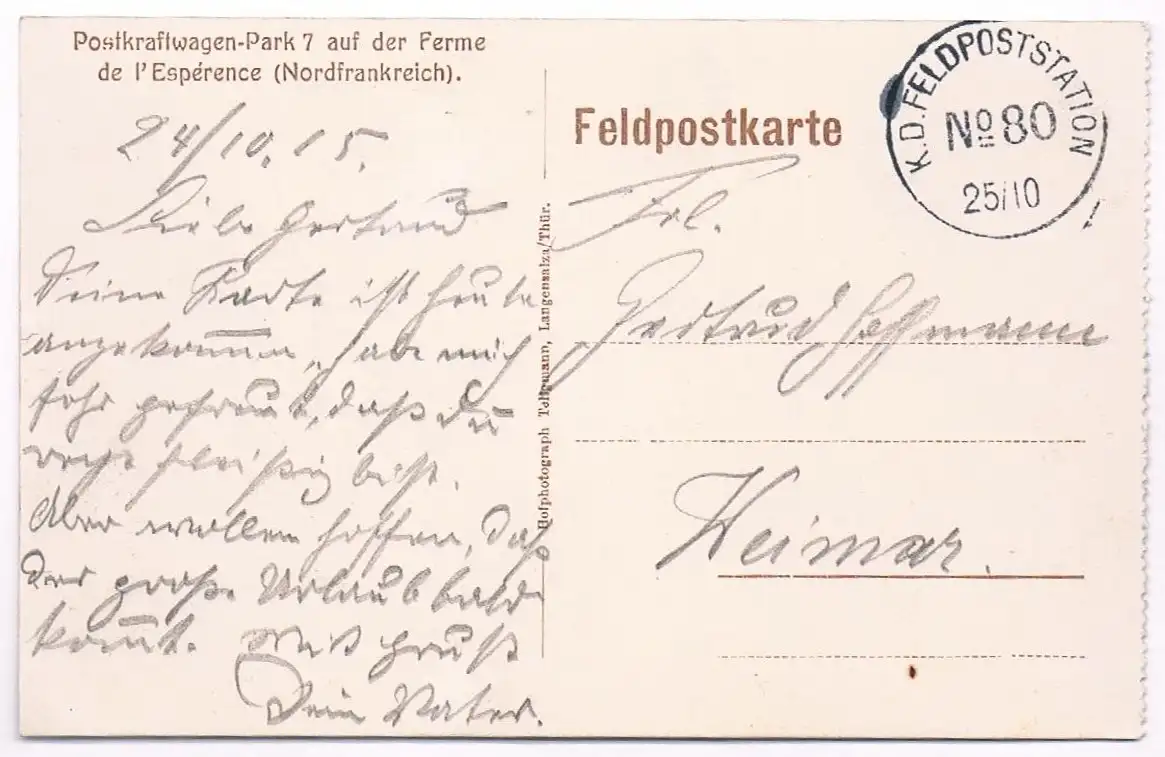 Postkraftwagen-Park 7 auf der Ferme
de l'Espérence (Nordfrankreich).
24/10.15.
Liebe Gertrud
Deine Karte ist heute
angekommen, habe mich
sehr gefreut, daß Du
recht fleißig bist.
Wir wollen hoffen, daß
der große Urlaub bald
kommt. Mit Gruß
Dein Vater.
Hofphotograph Tellgmann, Langensalza/Thür.
Feldpostkarte
K.D.FELDPOSTSTATION
No 80
25/10
Frl.
Gertrud
Weimar.